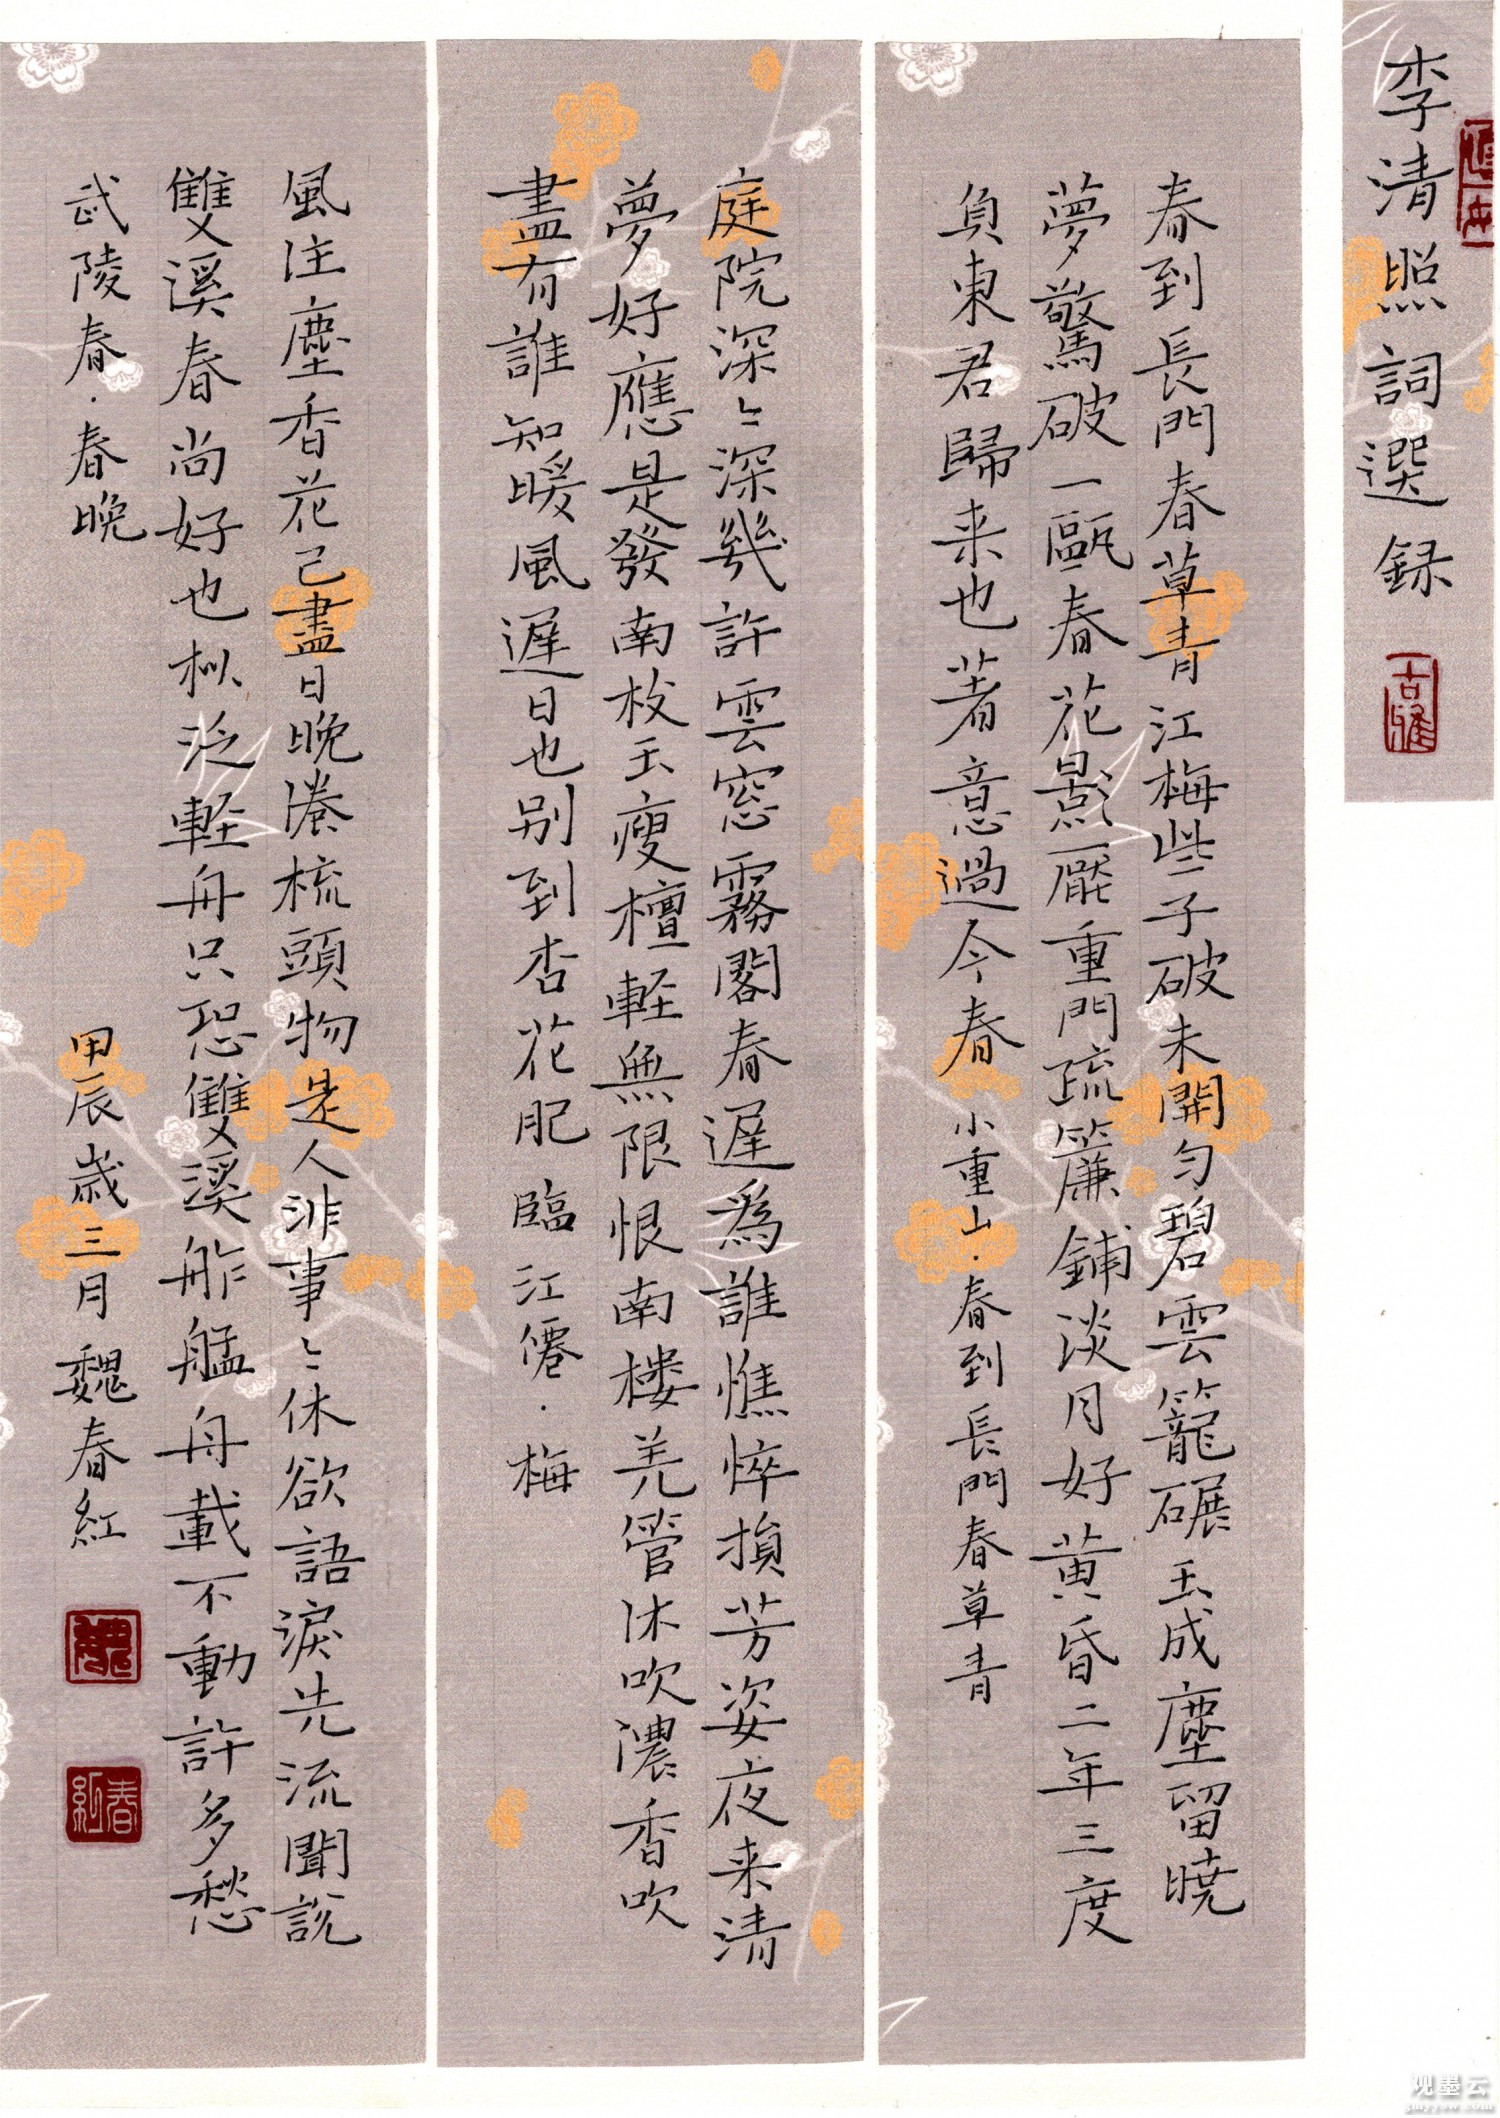 李清照詞選録
春到長門春草青江梅些子破未開勻碧雲籠碾玉成塵留曉
夢驚破一甌春花影厭重門疏簾鋪淡月好黄昏二年三度
負東君歸来也著意過今春 小重山·春到長門春草青
庭院深〻深幾許雲窓霧閣春遲爲誰憔悴損芳姿夜来清
夢好應是發南枝玉瘦檀輕無限恨南楼羌管休吹濃香吹
盡有誰知暖風遲日也别到杏花肥 臨江僊·梅
風住塵香花已盡日晚惓梳頭物是人非事〻休欲語淚先流聞說
雙溪春尚好也拟泛輕舟只恐雙溪舴艋舟載不動許多愁
武陵春·春晚 甲辰歲三月魏春紅
魏
春紅
观墨云